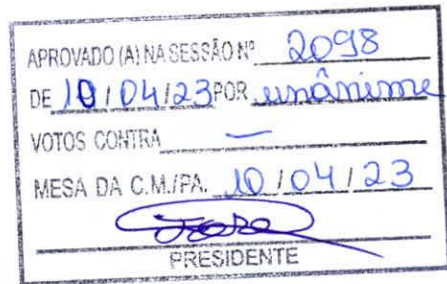 APROVADO (A) NA SESSÃO Nº 2098
DE 10 / 04 / 23 POR unânime
VOTOS CONTRA —
MESA DA C.M./PA. 10 / 04 / 23
PRESIDENTE